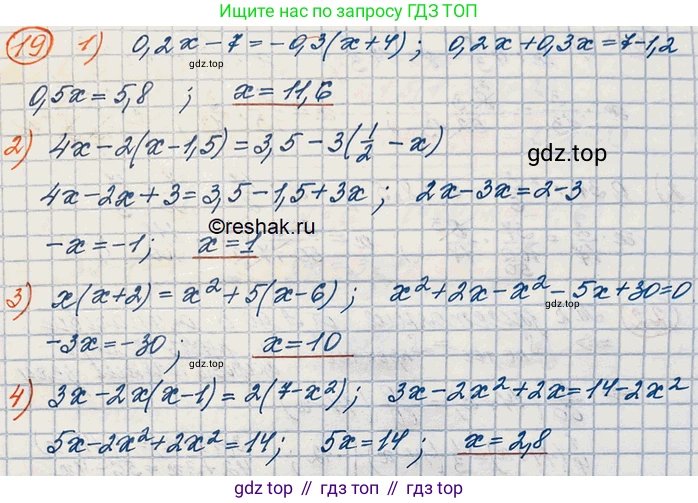 Ищите нас по запросу ГДЗ ТОП
19 1) 0,2x-7=-0,3(x+4); 0,2x+0,3x=7-1,2
gdz.top
0,5x=5,8 ; x=11,6
2) 4x-2(x-1,5)=3,5-3(1/2-x)
gdz.top
4x-2x+3=3,5-1,5+3x; 2x-3x=2-3
©reshak.ru
-x=-1; x=1
3) x(x+2)=x²+5(x-6); x²+2x-x²-5x+30=0
-3x=-30; x=10
gdz.top
4) 3x-2x(x-1)=2(7-x²); 3x-2x²+2x=14-2x²
5x-2x²+2x²=14; 5x=14; x=2,8
gdz.top // gdz.top // gdz.top